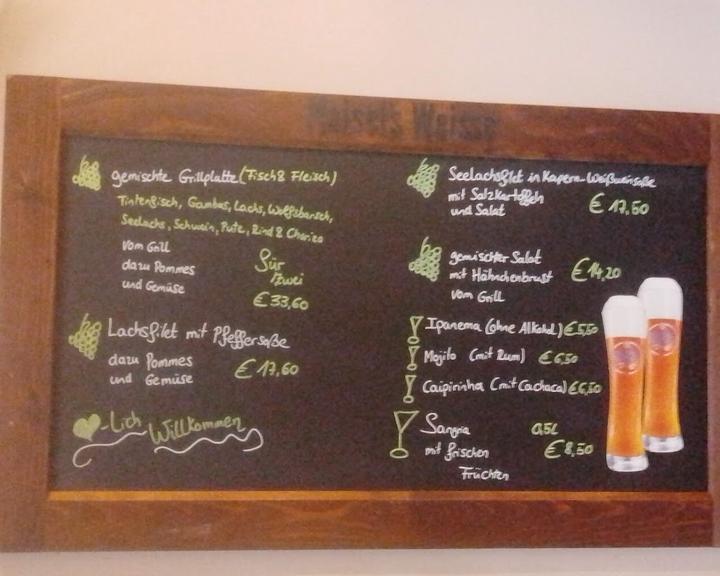 Maisel's Weisse
gemischte Grillplatte (Fisch & Fleisch)
Tintenfisch, Gambas, Lachs, Wolfsbarsch,
Seelachs, Schwein, Pute, Rind & Chorizo
vom Grill
dazu Pommes
und Gemüse
für
zwei
€ 33,60
Lachsfilet mit Pfeffersoße
dazu Pommes
und Gemüse
€ 17,60
-Lich Willkommen
Seelachsfilet in Kapern-Weißweinsoße
mit Salzkartoffeln
und Salat
€ 17,50
gemischter Salat
mit Hähnchenbrust
vom Grill
€ 14,20
Ipanema (ohne Alkohol) € 5,50
Mojito (mit Rum) € 6,50
Caipirinha (mit Cachaca) € 6,50
Sangria 0,5L
mit frischen € 8,50
Früchten